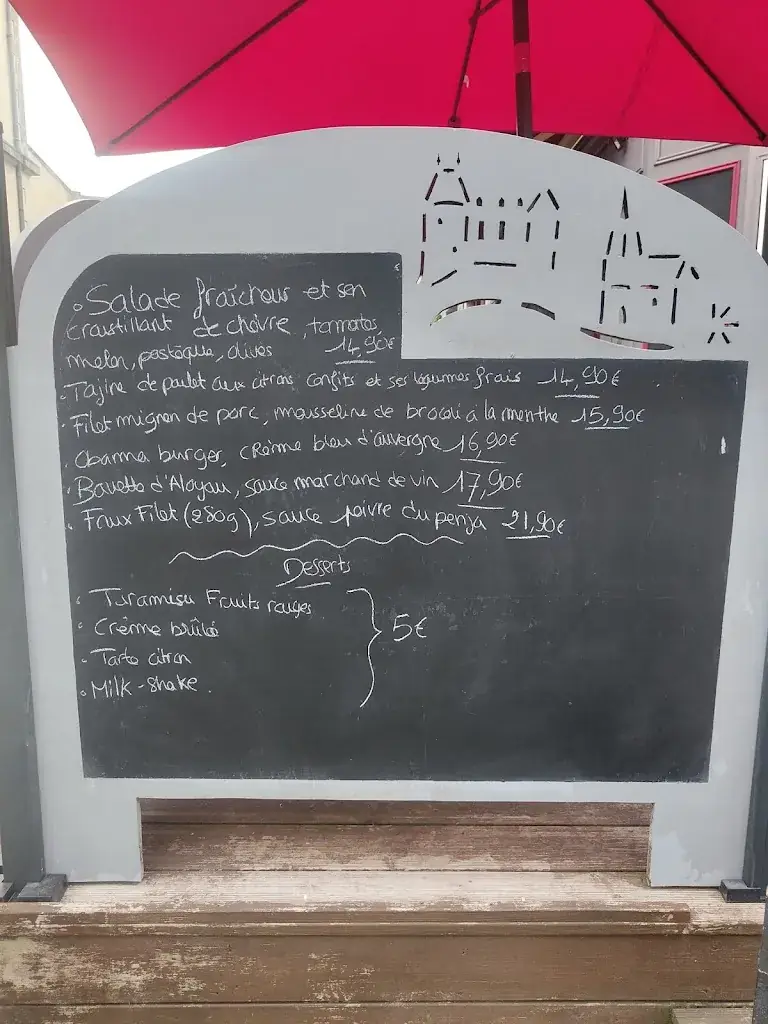 Salade fraîcheur et sen
croustillant de chèvre, tomates,
melon, pastèque, olives 14,90€
Tajine de poulet aux citrons confits et ses légumes frais 14,90€
Filet mignon de porc, mousseline de brocoli a la menthe 15,90€
Obama burger, crème bleu d'auvergne 16,90€
Bavette d'Aloyau, sauce marchand de vin 17,90€
Faux Filet (280g), sauce poivre du penja 21,90€
Desserts
Tiramisu Fruits rouges
Crème brûlée
5€
Tarte citron
Milk-shake.